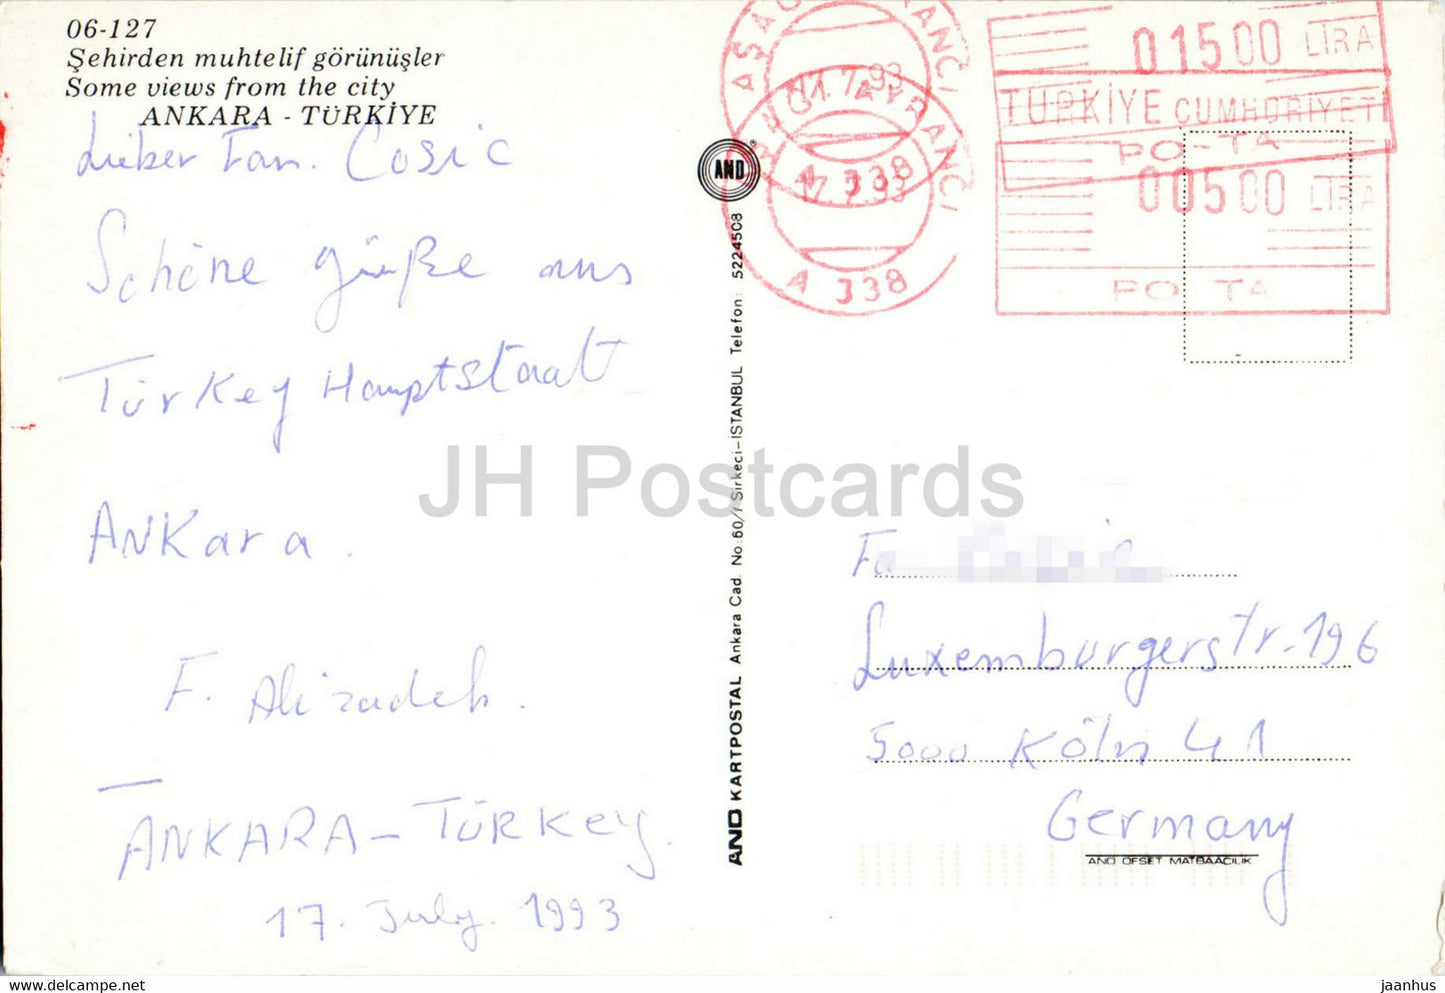 06-127
Şehirden muhtelif görünüşler
Some views from the city
ANKARA - TÜRKİYE
Lieber Fam. Cosic
Schöne güße aus
Türkey Hauptstaat
Ankara.
F. Alizadeh.
ANKARA - TÜRKEY.
17. July. 1993
AND
AND KARTPOSTAL Ankara Cad. No: 60/1 Sirkeci-İSTANBUL Telefon: 5224508
AŞAĞI AYRANCI
17.7.93
A 338
01500 LİRA
TÜRKİYE CUMHURİYETİ
PO-TA
AŞAĞI AYRANCI
17.7.93
A 338
00500 LİRA
PO TA
JH Postcards
Fa
Luxemburgerstr. 196
5000 Köln 41
Germany
AND OFSET MATBAACILIK
jaanhus